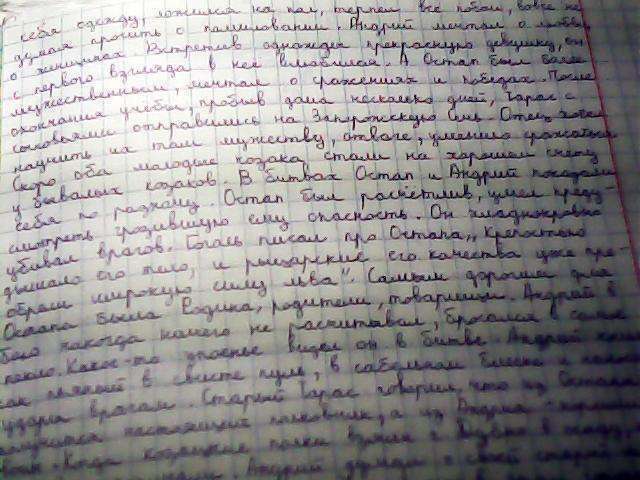 себя одежду, ложился на пол, терпел все побои, вовсе не
думая просить о помиловании. Андрий мечтал о любви,
о женщинах. Встретив однажды прекрасную девушку, он
с первого взгляда в неё влюбился. А Остап был более
мужественным, мечтал о сражениях и победах. После
окончания учёбы, пробыв дома несколько дней, Тарас с
сыновьями отправились на Запорожскую Сечь. Отец хотел
научить их там мужеству, отваге, умению сражаться.
Скоро оба молодые козака стали на хорошем счету
у бывалых козаков. В битвах Остап и Андрий показали
себя по разному. Остап был расчётлив, умел преду-
смотреть грозившую ему опасность. Он хладнокровно
убивал врагов. Гоголь писал про Остапа „ Крепостью
дышало его тело, и рыцарские его качества уже прио-
обрали широкую силу льва". Самым дорогим для
Остапа была Родина, родители, товарищи. Андрий в
бою никогда ничего не рассчитывал, бросался в самое
пекло. Какое-то упоенье видел он в битве. Андрий
как пьяный в свисте пуль, в сабельном блеске и
ударял врагам. Старый Тарас говорил, что из Остапа
получится настоящий полковник, а из Андрия -
Когда козацкие полки взяли в
Андрий